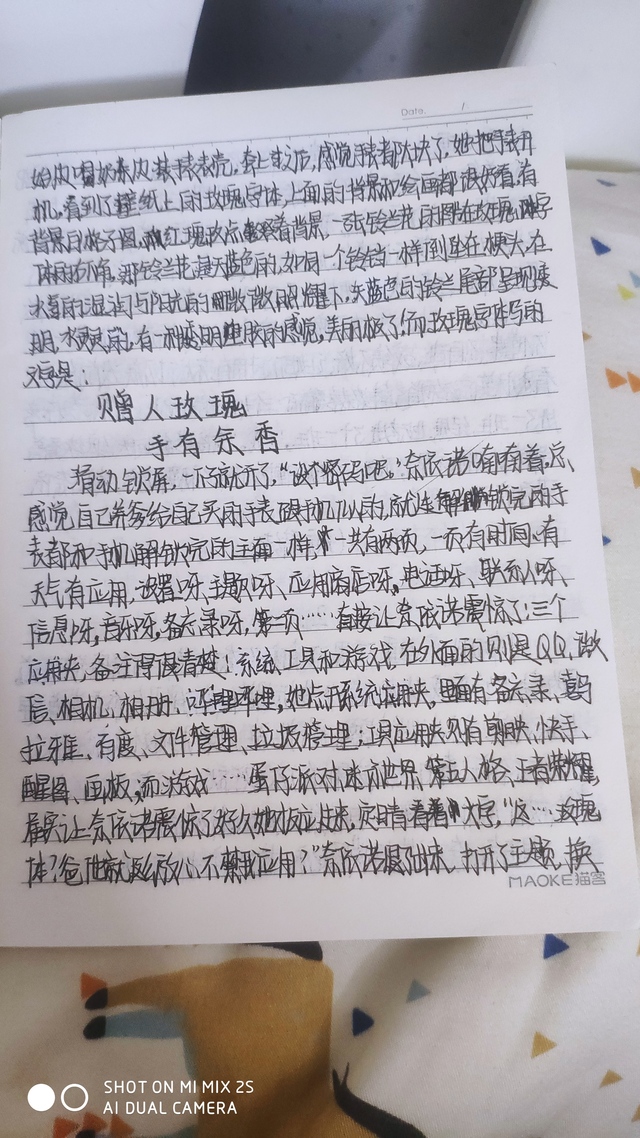 Date. /
皮手表表壳,套上去之后,感觉手表都大块了,她把手表开
机,看到了壁纸上的玫瑰字体,上面的背景和绘画都很好看,有
背景,一张铃兰花的图在玫瑰字
体的右侧,那铃兰花是天蓝色的,如同一个铃铛一样倒坠在梗头,在
的湿润与阳光的微微照耀下,天蓝色的铃兰尾部呈现透
明,水灵的,有一种透明的感觉,美丽极了!而玫瑰字体写的
文字是:
赠人玫瑰
手有余香
滑动锁屏,一下就开了,“没个密码吧。”奈依诺嘀咕着,总
感觉,自己爸爸给自己买的手表跟手机似的,就连解锁完的手
表都和手机解锁完的主面一样,一共有两页,一页有时间、有
天气有应用,设置呀、主题呀、应用商店呀,电话呀、联系人呀、
信息呀,音乐呀,备忘录呀,第二页……直接让奈依诺震惊了!三个
应用夹,备注得很清楚!系统、工具和游戏,在外面的则是QQ、微
信、相机、相册,她点开系统应用夹,里面有备忘录、喜马
拉雅、百度、文件管理、垃圾管理;工具应用夹则有剪映、快手、
醒图、画板;而游戏……蛋仔派对、迷你世界、第五人格、王者荣耀,
着实让奈依诺震惊了好久她才反应过来,定睛看着大字,“这…玫瑰
体?爸他就这么放心,不禁我应用?”奈依诺退出来,打开了主题,换
MAOKE猫客
SHOT ON MI MIX 2S
AI DUAL CAMERA